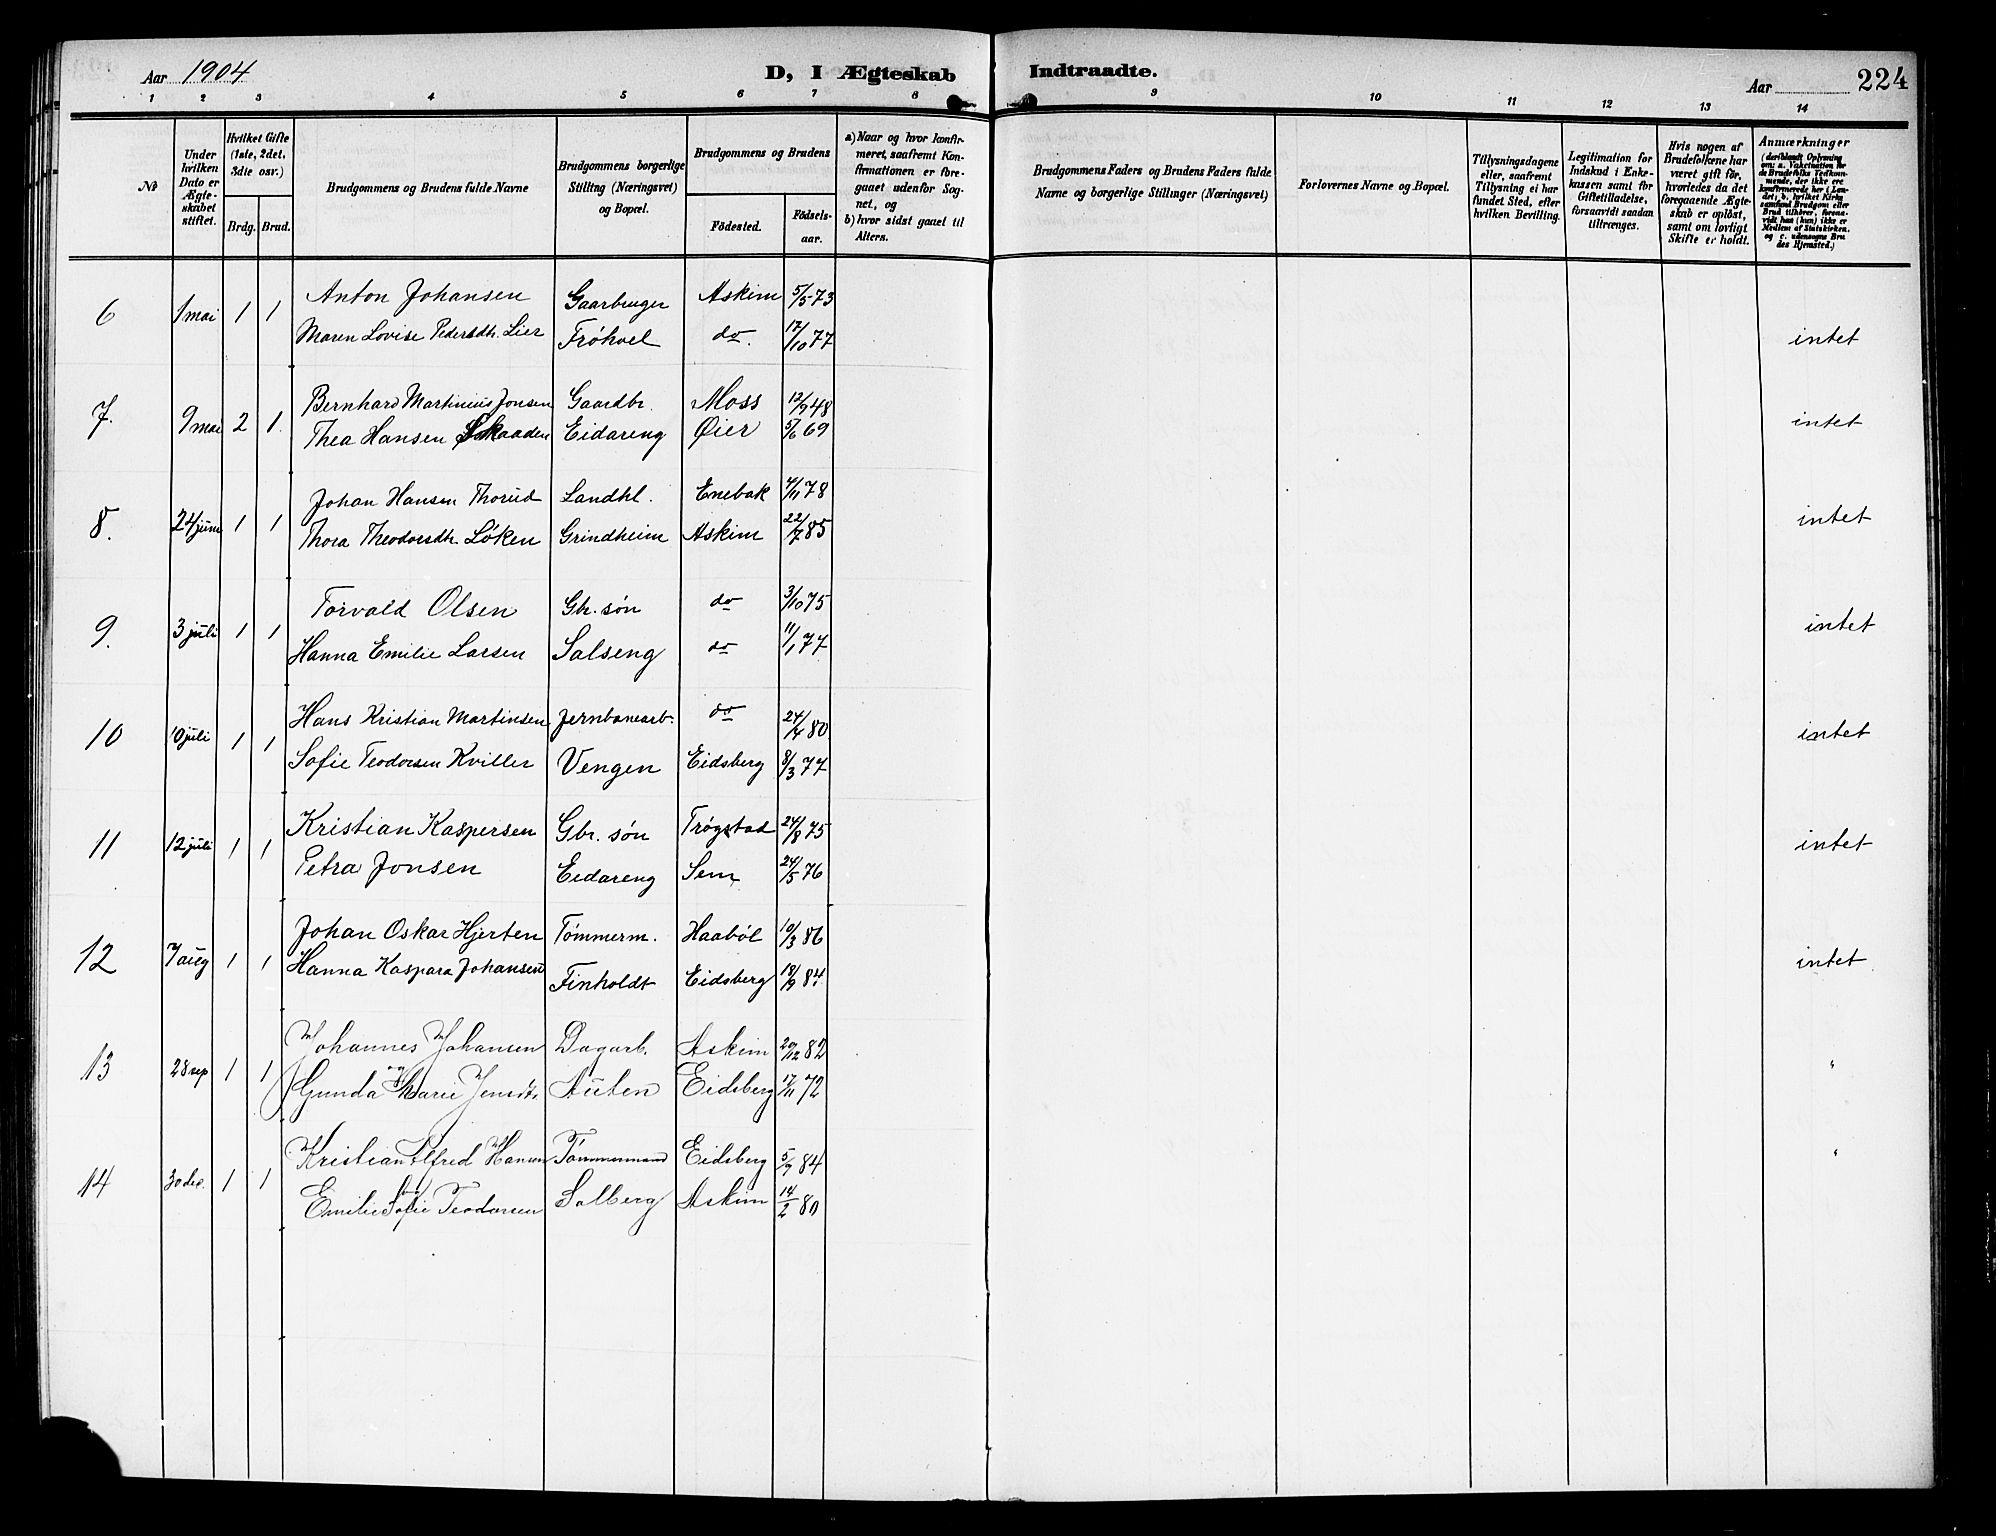 Aar 1904
D, I Ægteskab Indtraadte.
Aar 224
1 2 3 4 5 6 7 8 9 10 11 12 13 14
No
Under hvilken Dato er Ægteskabet stiftet.
Hvilket Gifte (1ste, 2det, 3die osr.)
Brdg. Brud.
Brudgommens og Brudens fulde Navne
Brudgommens borgerlige Stilling (Næringsvei) og Bopæl.
Brudgommens og Brudens
Födested.
Födselsaar.
a) Naar og hvor konfirmeret, saafremt Konfirmationen er foregaaet udenfor Sognet, og
b) hvor sidst gaaet til Alters.
Brudgommens Faders og Brudens Faders fulde Navne og borgerlige Stillinger (Næringsvei)
Forlovernes Navne og Bopæl.
Tillysningsdagene eller, saafremt Tillysning ei har fundet Sted, efter hvilken Bevilling.
Legitimation for Indskud i Enkekassen samt for Giftetilladelse, forsaavidt saadan tiltrænges.
Hvis nogen af Brudefolkene har været gift för, hvorledes da det foregaaende Ægteskab er oplöst, samt om lovligt Skifte er holdt.
Anmærkninger
(deriblandt Oplysning om: a. Vakcination for de Brudefolks Vedkommende, der ikke ere konfirmerede her i Landet; b. hvilket Kirkesamfund Brudgom eller Brud tilhörer, forsaavidt han (hun) ikke er Medlem af Statskirken. og c. udensogns Brudes Hjemsted.)
6 1 mai 1 1 Anton Johansen Gaarbruger Askim 5/5 73
Maren Lovise Pedersdtr. Lier Frøhoel do. 17/10 77 intet
7. 9 mai 2 1. Bernhard Martinius Jonsen Gaardbr. Moss 12/9 48
Thea Hansen Skaaden Eidareng Øier 5/6 69 intet
8. 24 juni 1 1 Johan Hansen Thorud Landhl. Enebak 4/11 78
Thora Theodorsdtr. Løken Grindheim Askim 22/7 85 intet
9. 3 juli 1 1 Torvald Olsen Gbr. søn do 3/10 75
Hanna Emilie Larsen Salseng do 11/1 77 intet
10 10 juli 1 1 Hans Kristian Martinsen Jernbanearb. do 24/4 80
Sofie Teodorsen Kviller Vengen Eidsberg 8/3 77 intet
11 12 juli 1 1 Kristian Kaspersen Gbr. søn Trøgstad 24/8 75
Petra Jonsen Eidareng Sem 24/5 76 intet
12 7 aug 1 1 Johan Oskar Hjerten Tømmerm. Haabøl 10/3 86
Hanna Kaspara Johansen Finholdt Eidsberg 18/9 84 intet
13 28 sep 1 1 Johannes Johansen Dagarb. Askim 20/12 82
og
Gunda Marie Jensdtr. Auten Eidsberg 17/11 72 "
14 30 dec. 1 1 Kristian Alfred Hansen Tømmermand Eidsberg 5/9 84
Emilie Sofie Teodorsen Solberg Askim 14/2 80 "